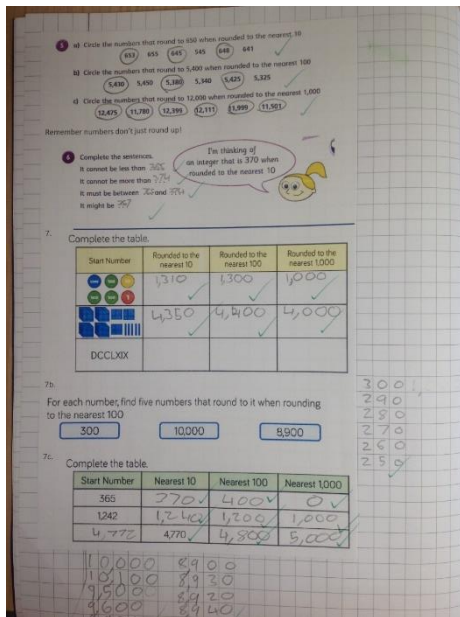 5 a) Circle the numbers that round to 650 when rounded to the nearest 10
653 655 645 545 648 641
b) Circle the numbers that round to 5,400 when rounded to the nearest 100
5,430 5,450 5,380 5,340 5,425 5,325
c) Circle the numbers that round to 12,000 when rounded to the nearest 1,000
12,475 11,780 12,399 12,111 11,999 11,501
Remember numbers don't just round up!
6 Complete the sentences.
I'm thinking of
an integer that is 370 when
rounded to the nearest 10
It cannot be less than 365
It cannot be more than 374
It must be between 365 and 374
It might be
7.
Complete the table.
Start Number Rounded to the nearest 10 Rounded to the nearest 100 Rounded to the nearest 1,000
1,310 1,300 1,000
4,350 4,400 4,000
DCCLXIX
7b.
For each number, find five numbers that round to it when rounding
to the nearest 100
300 10,000 8,900
7c.
Complete the table.
Start Number Nearest 10 Nearest 100 Nearest 1,000
365 370 400 0
1,242 1,240 1,200 1,000
4,772 4,770 4,800 5,000
300
290
280
270
260
250
10,000 8,900
10,100 8,930
9,500 8,920
9,600 8,940